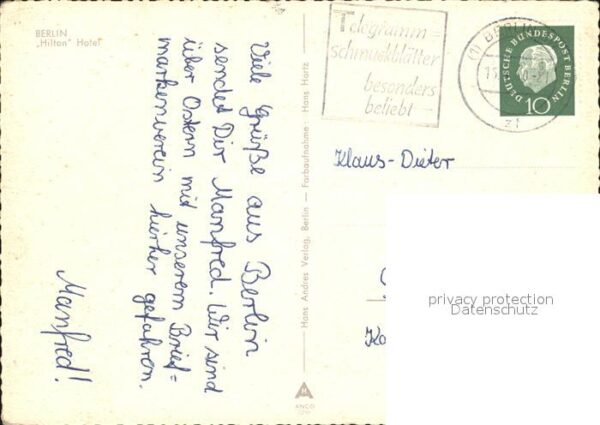 BERLIN
„Hilton" Hotel
Viele Grüße aus Berlin
sendet Dir Manfred. Wir sind
über Ostern mit unserem Brief=
markenverein hierher gefahren.
Manfred!
Hans Andres Verlag, Berlin — Farbaufnahme: Hans Hartz
ANCO
Telegramm=
schmuckblätter
besonders
beliebt
(1) BERLIN
DEUTSCHE BUNDESPOST BERLIN
10
Klaus-Dieter
privacy protection
Datenschutz